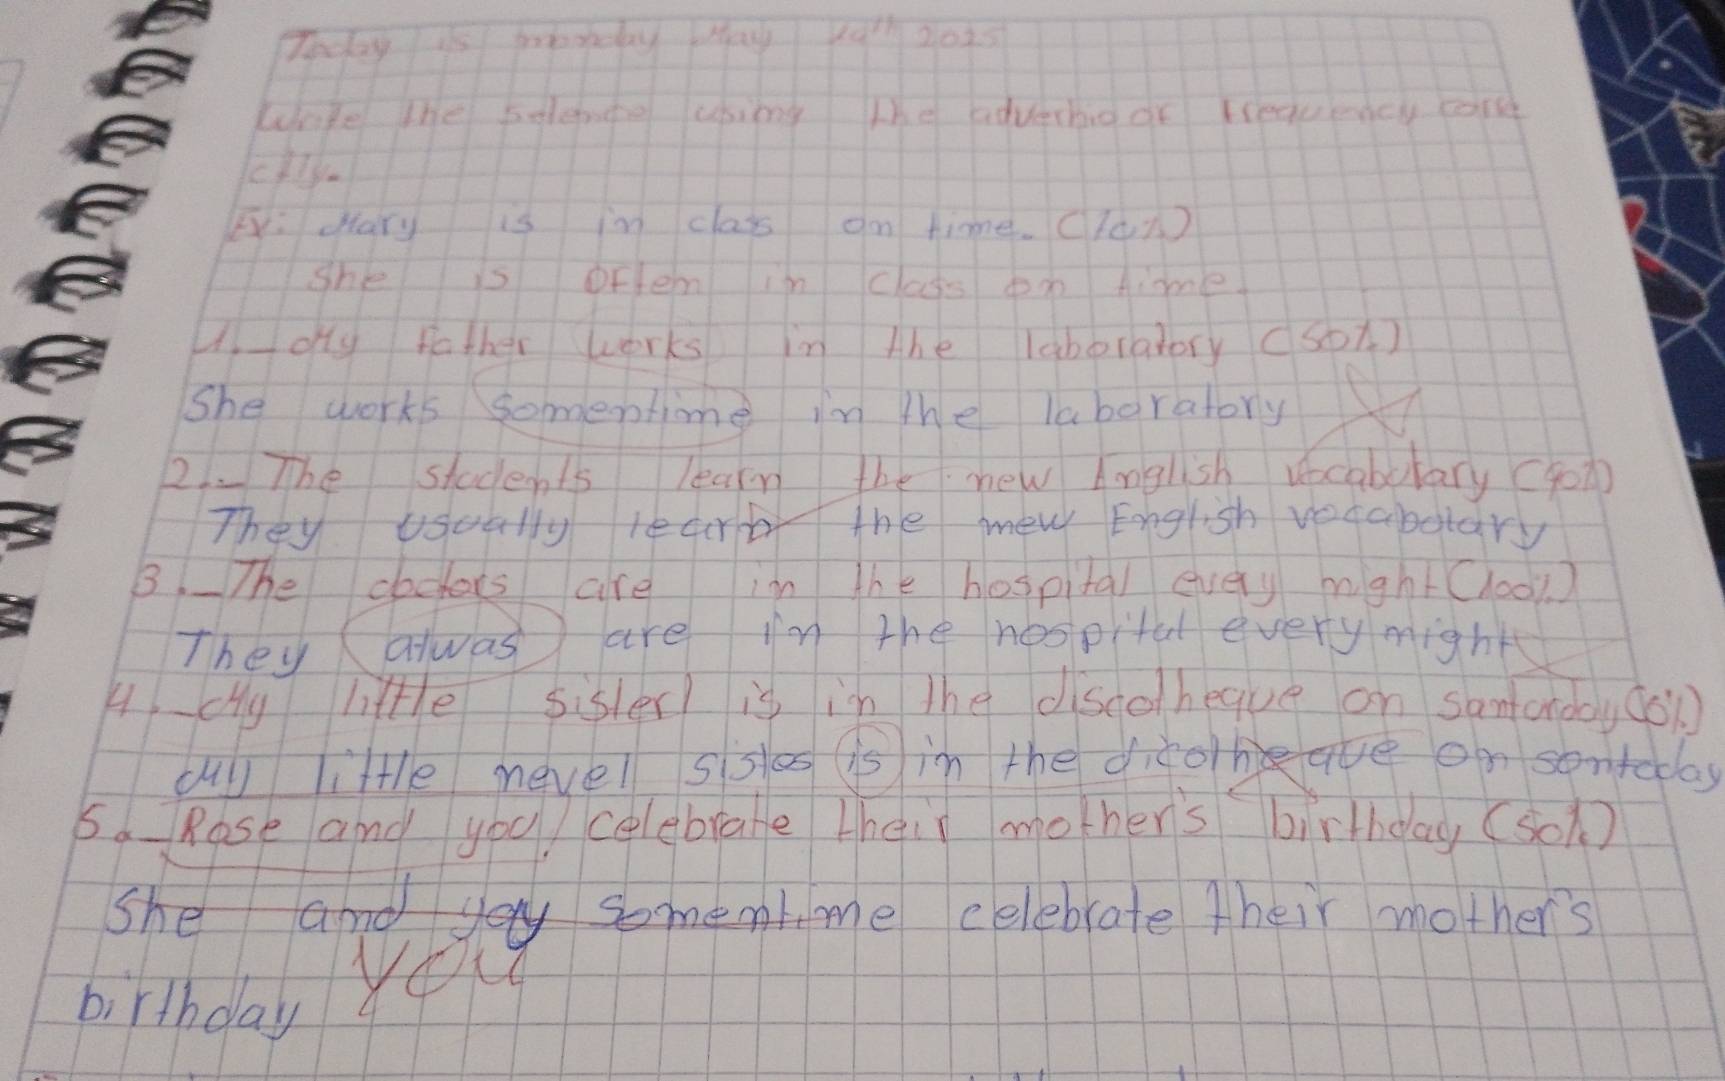 Today is monday May 2025
Write the setence using the adverbio of frequency corre
ctly.
Ex: Mary is in class on time. (70%)
She is oftem in class on time.
1._ My father works in the laboratory (50%)
She works somentime in the laboratory
2._ The students learn the new English vocabulary (90%)
They usually learn the mew English vocabolary
3._ The doctors are in the hospital every night (100%)
They alwas are in the hospital every might
4._ My little sister is in the discotheque on santorday (0%)
My little nevel sistes is in the dicotheque on sontoday
5._ Rose and you celebrate their mother's birthday (50%)
She and you somentime celebrate their mother's
you
birthday